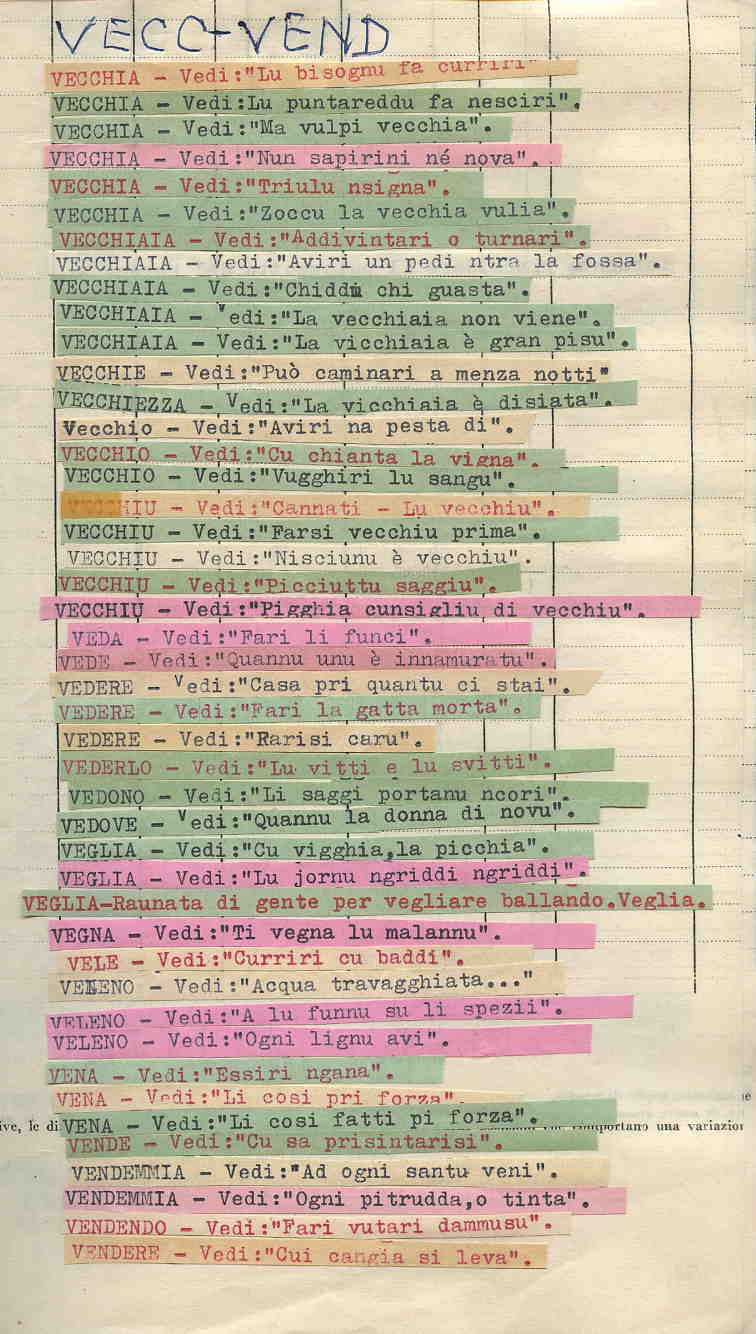 VECC-VEND
VECCHIA - Vedi:"Lu bisognu fa curriri"
VECCHIA - Vedi:Lu puntareddu fa nesciri".
VECCHIA - Vedi:"Ma vulpi vecchia".
VECCHIA - Vedi:"Nun sapirini né nova".
VECCHIA - Vedi:"Triulu nsigna".
VECCHIA - Vedi:"Zoccu la vecchia vulia".
VECCHIAIA - Vedi:"Addivintari o turnari".
VECCHIAIA - Vedi:"Aviri un pedi ntra la fossa".
VECCHIAIA - Vedi:"Chiddu chi guasta".
VECCHIAIA - Vedi:"La vecchiaia non viene".
VECCHIAIA - Vedi:"La vicchiaia è gran pisu".
VECCHIE - Vedi:"Può caminari a menza notti"
VECCHIEZZA - Vedi:"La vicchiaia è disiata".
Vecchio - Vedi:"Aviri na pesta di".
VECCHIO - Vedi:"Cu chianta la vigna".
VECCHIO - Vedi:"Vugghiri lu sangu".
VECCHIU - Vedi:"Cannati - Lu vecchiu".
VECCHIU - Vedi:"Farsi vecchiu prima".
VECCHIU - Vedi:"Nisciunu è vecchiu".
VECCHIU - Vedi:"Picciuttu saggiu".
VECCHIU - Vedi:"Pigghia cunsigliu di vecchiu".
VEDA - Vedi:"Fari li funci".
VEDE - Vedi:"Quannu unu è innamuratu".
VEDERE - Vedi:"Casa pri quantu ci stai".
VEDERE - Vedi:"Fari la gatta morta".
VEDERE - Vedi:"Rarisi caru".
VEDERLO - Vedi:"Lu vitti e lu svitti".
VEDONO - Vedi:"Li saggi portanu ncori".
VEDOVE - Vedi:"Quannu la donna di novu".
VEGLIA - Vedi:"Cu vigghia,la picchia".
VEGLIA - Vedi:"Lu jornu ngriddi ngriddi".
VEGLIA-Raunata di gente per vegliare ballando.Veglia.
VEGNA - Vedi:"Ti vegna lu malannu".
VELE - Vedi:"Curriri cu baddi".
VELENO - Vedi:"Acqua travagghiata..."
VELENO - Vedi:"A lu funnu su li spezii".
VELENO - Vedi:"Ogni lignu avi".
VENA - Vedi:"Essiri ngana".
VENA - Vedi:"Li cosi pri forza".
ive, le di VENA - Vedi:"Li cosi fatti pi forza". comportano una variazion
VENDE - Vedi:"Cu sa prisintarisi".
VENDEMMIA - Vedi:"Ad ogni santu veni".
VENDEMMIA - Vedi:"Ogni pitrudda,o tinta".
VENDENDO - Vedi:"Fari vutari dammusu".
VENDERE - Vedi:"Cui cangia si leva".